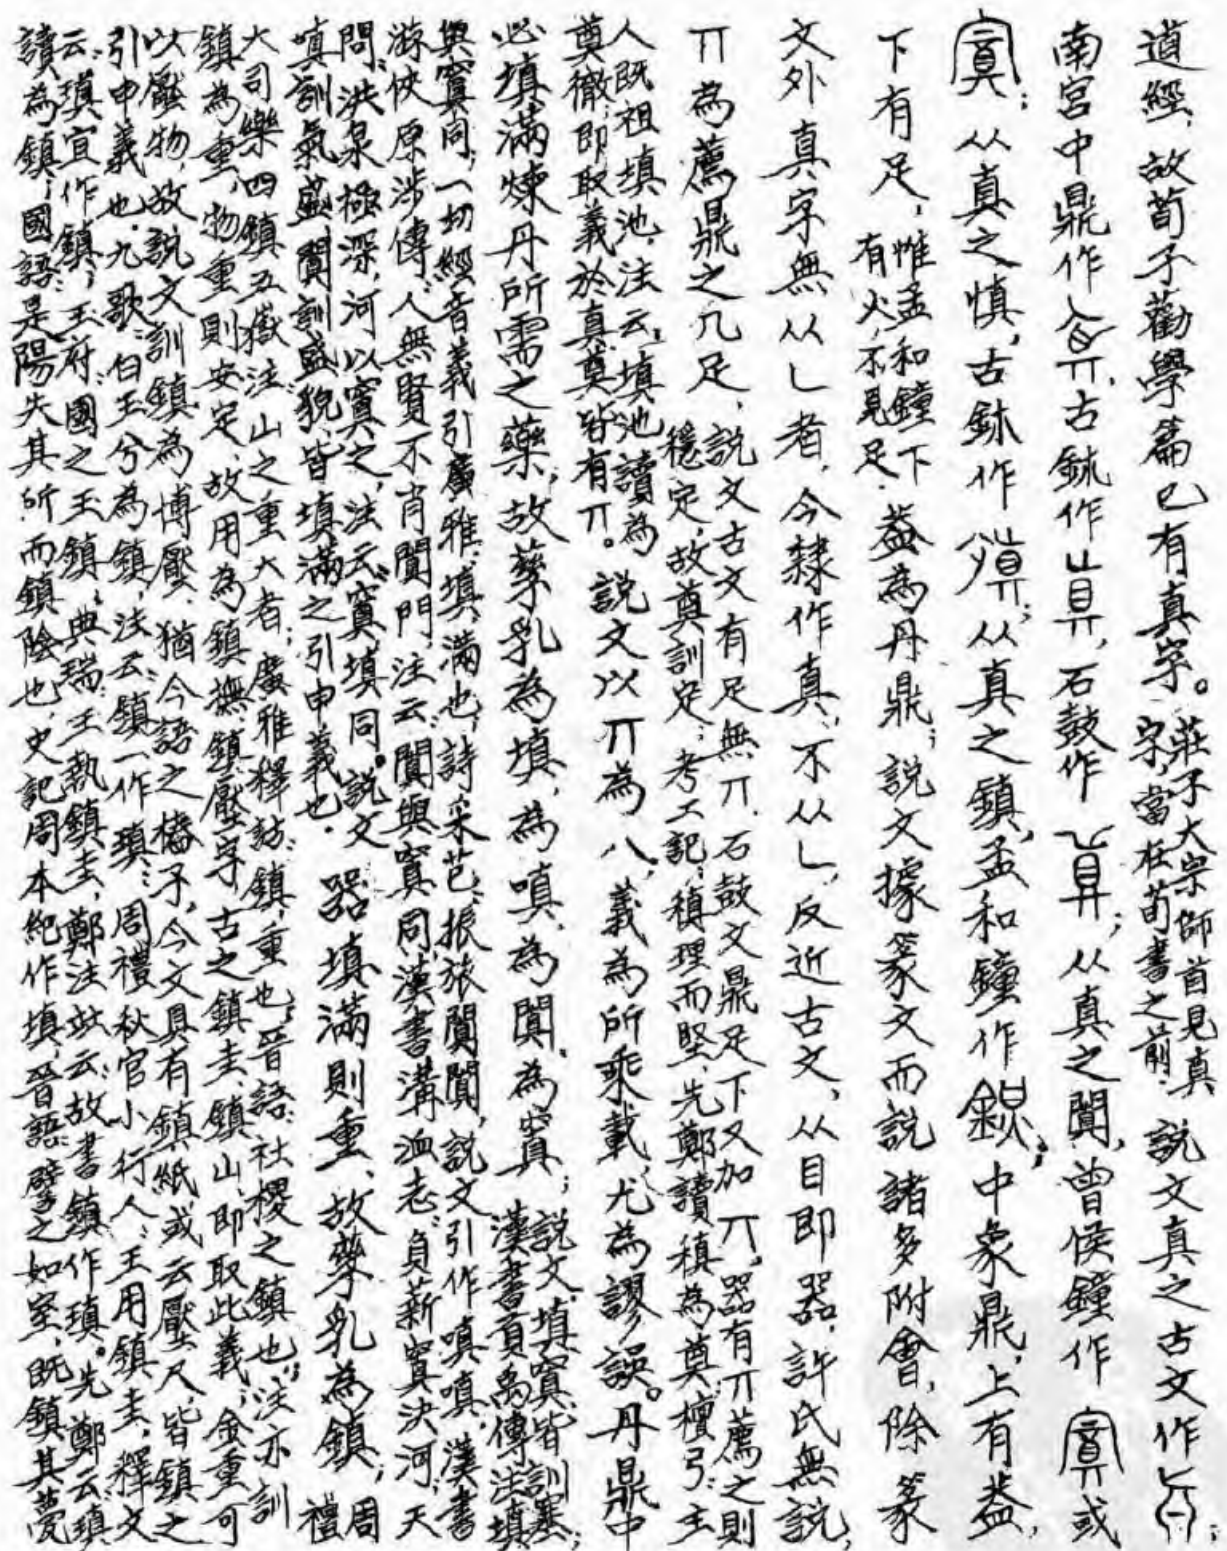 道經，故荀子勸學篇已有真字。莊子大宗師首見真字，當在荀書之前．說文真之古文作；
南宮中鼎作，古鉥作，石鼓作；从真之闐，曾侯鐘作或
；从真之慎，古鉥作；从真之鎮，盄和鐘作；中象鼎，上有益，
下有足，惟盄和鐘下有火，不見足．益為丹鼎；說文據篆文而說諸多附會，除篆
文外真字無从乚者，今隸作真，不从乚，反近古文，从目即器，許氏無說，
丌為薦鼎之几足，說文古文有足無丌，石鼓文鼎足下又加丌，器有丌薦之則穩定，故奠訓定；考工記：稹理而堅，先鄭讀稹為奠，檀弓：主
人既祖填池，注云：填池讀為奠徹，即取義於真奠皆有丌。說文以丌為八，義為所乘載，尤為謬誤。丹鼎中
必填滿煉丹所需之藥，故孳乳為填，為嗔，為闐，為窴；說文：填窴皆訓塞；漢書貢禹傳注填
與窴同，一切經音義引廣雅：填，滿也，詩采芑：振旅闐闐，說文引作嗔嗔，漢書
游俠原涉傳：人無賢不肖闐門，注云：闐與窴同，漢書溝洫志：負薪窴決河，天
問：洪泉極深，河以窴之，注云：窴填同。說文嗔訓氣盛，闐訓盛貌，皆填滿之引申義也．器填滿則重，故孳乳為鎮；周禮
大司樂四鎮五嶽注：山之重大者；廣雅釋詁：鎮，重也；晉語：社稷之鎮也，注亦訓
鎮為重，物重則安定，故用為鎮撫鎮壓字，古之鎮圭鎮山，即取此義；金重可
以壓物，故說文訓鎮為博壓，猶今語之樁子，今文具有鎮紙或云壓尺，皆鎮之
引申義也．九歌：白玉兮為鎮，注云：鎮一作瑱；周禮秋官小行人：王用鎮圭，釋文
云：瑱宜作鎮；玉府：國之玉鎮，典瑞：王執鎮圭，鄭注竝云：故書鎮作瑱。先鄭云：瑱
讀為鎮；國語：是陽失其所而鎮陰也，史記周本紀作填；晉語：譬之如室，既鎮其甍